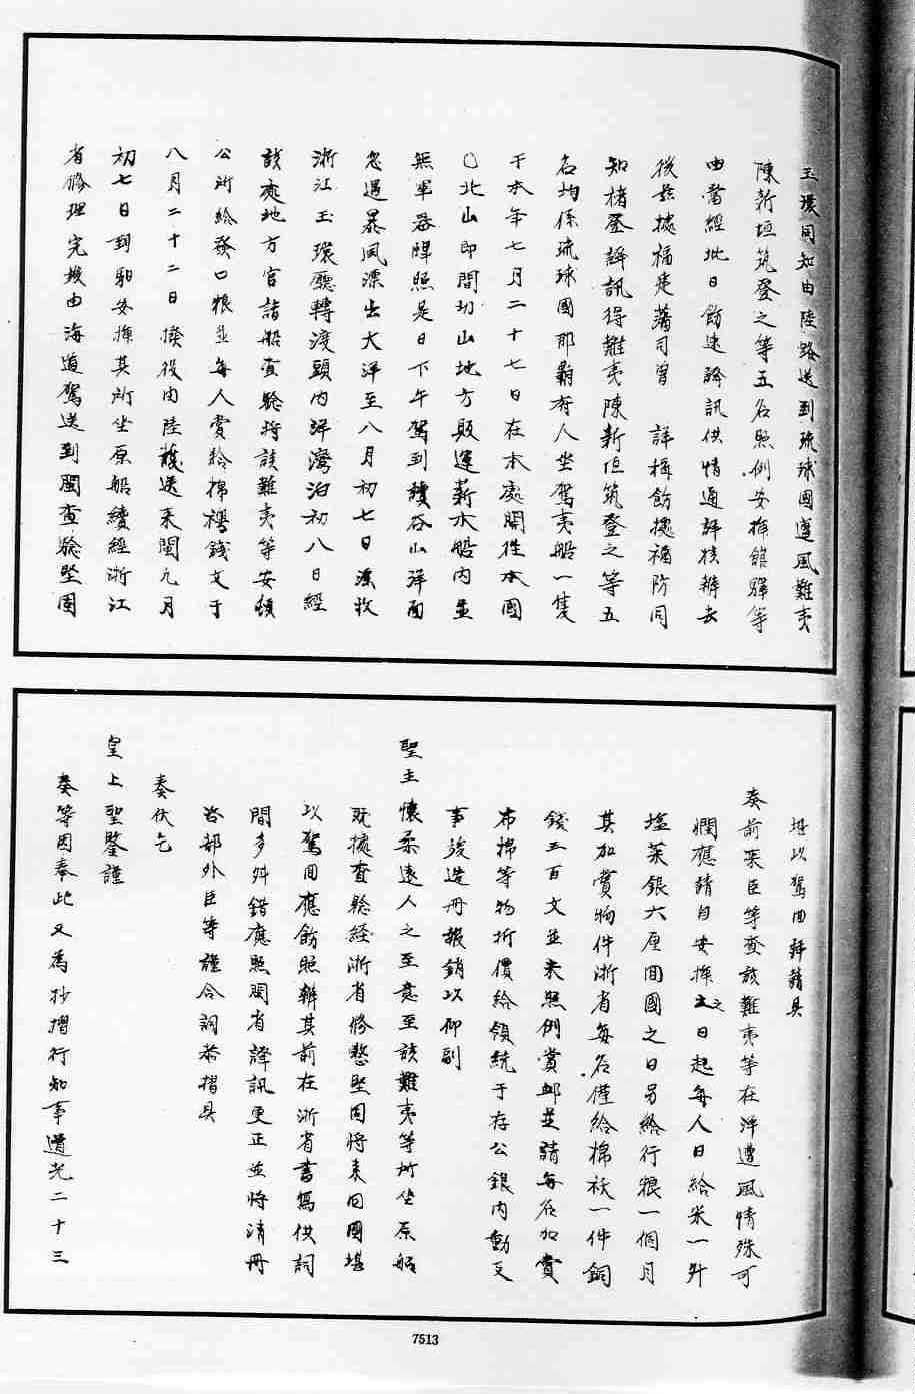 玉環同知由陸路送到琉球國遭風難夷
陳新垣筑登之等五名照例安揷館驛等
由當經批日飭速詳訊供情通詳核辦去
後玆據福建藩司曾　詳稱飭據福防同
知楮登譯訊得難夷陳新垣筑登之等五
名均係琉球國那霸府人坐駕夷船一隻
于本年七月二十七日在本處開徃本國
北山即間切山地方販運薪木船内並
無軍器牌照是日下午駕到讀谷山洋面
忽遇暴風漂出大洋至八月初七日漂收
浙江玉環廳轉渡頭内洋灣泊初八日經
該處地方官詣船查驗將該難夷等安頓
公所給發口粮並每人賞給棉襖錢文于
八月二十二日撥役由陸護送來閩九月
初七日到驛安揷其所坐原船續經浙江
省修理完找由海道駕送到閩查驗堅固
堪以駕回詳請具
奏前來臣等查該難夷等在洋遭風情殊可
憫應請自安揷之日起每人日給米一升
塩菜銀六厘回國之日另給行粮一個月
其加賞物件浙省每名僅給棉袄一件銅
錢三百文並未照例賞卹並請每名加賞
布棉等物折價給領統于存公銀内動支
事竣造册報銷以仰副
聖主懷柔遠人之至意至該難夷等所坐原船
既據查驗經浙省修整堅固將來回國堪
以駕回應飭照辦其前在浙省書寫供詞
間多舛錯應照閩省譯訊更正並將清册
咨部外臣等謹合詞恭摺具
奏伏乞
皇上聖鑒謹
奏等因奉此又為抄摺行知事道光二十三
7513